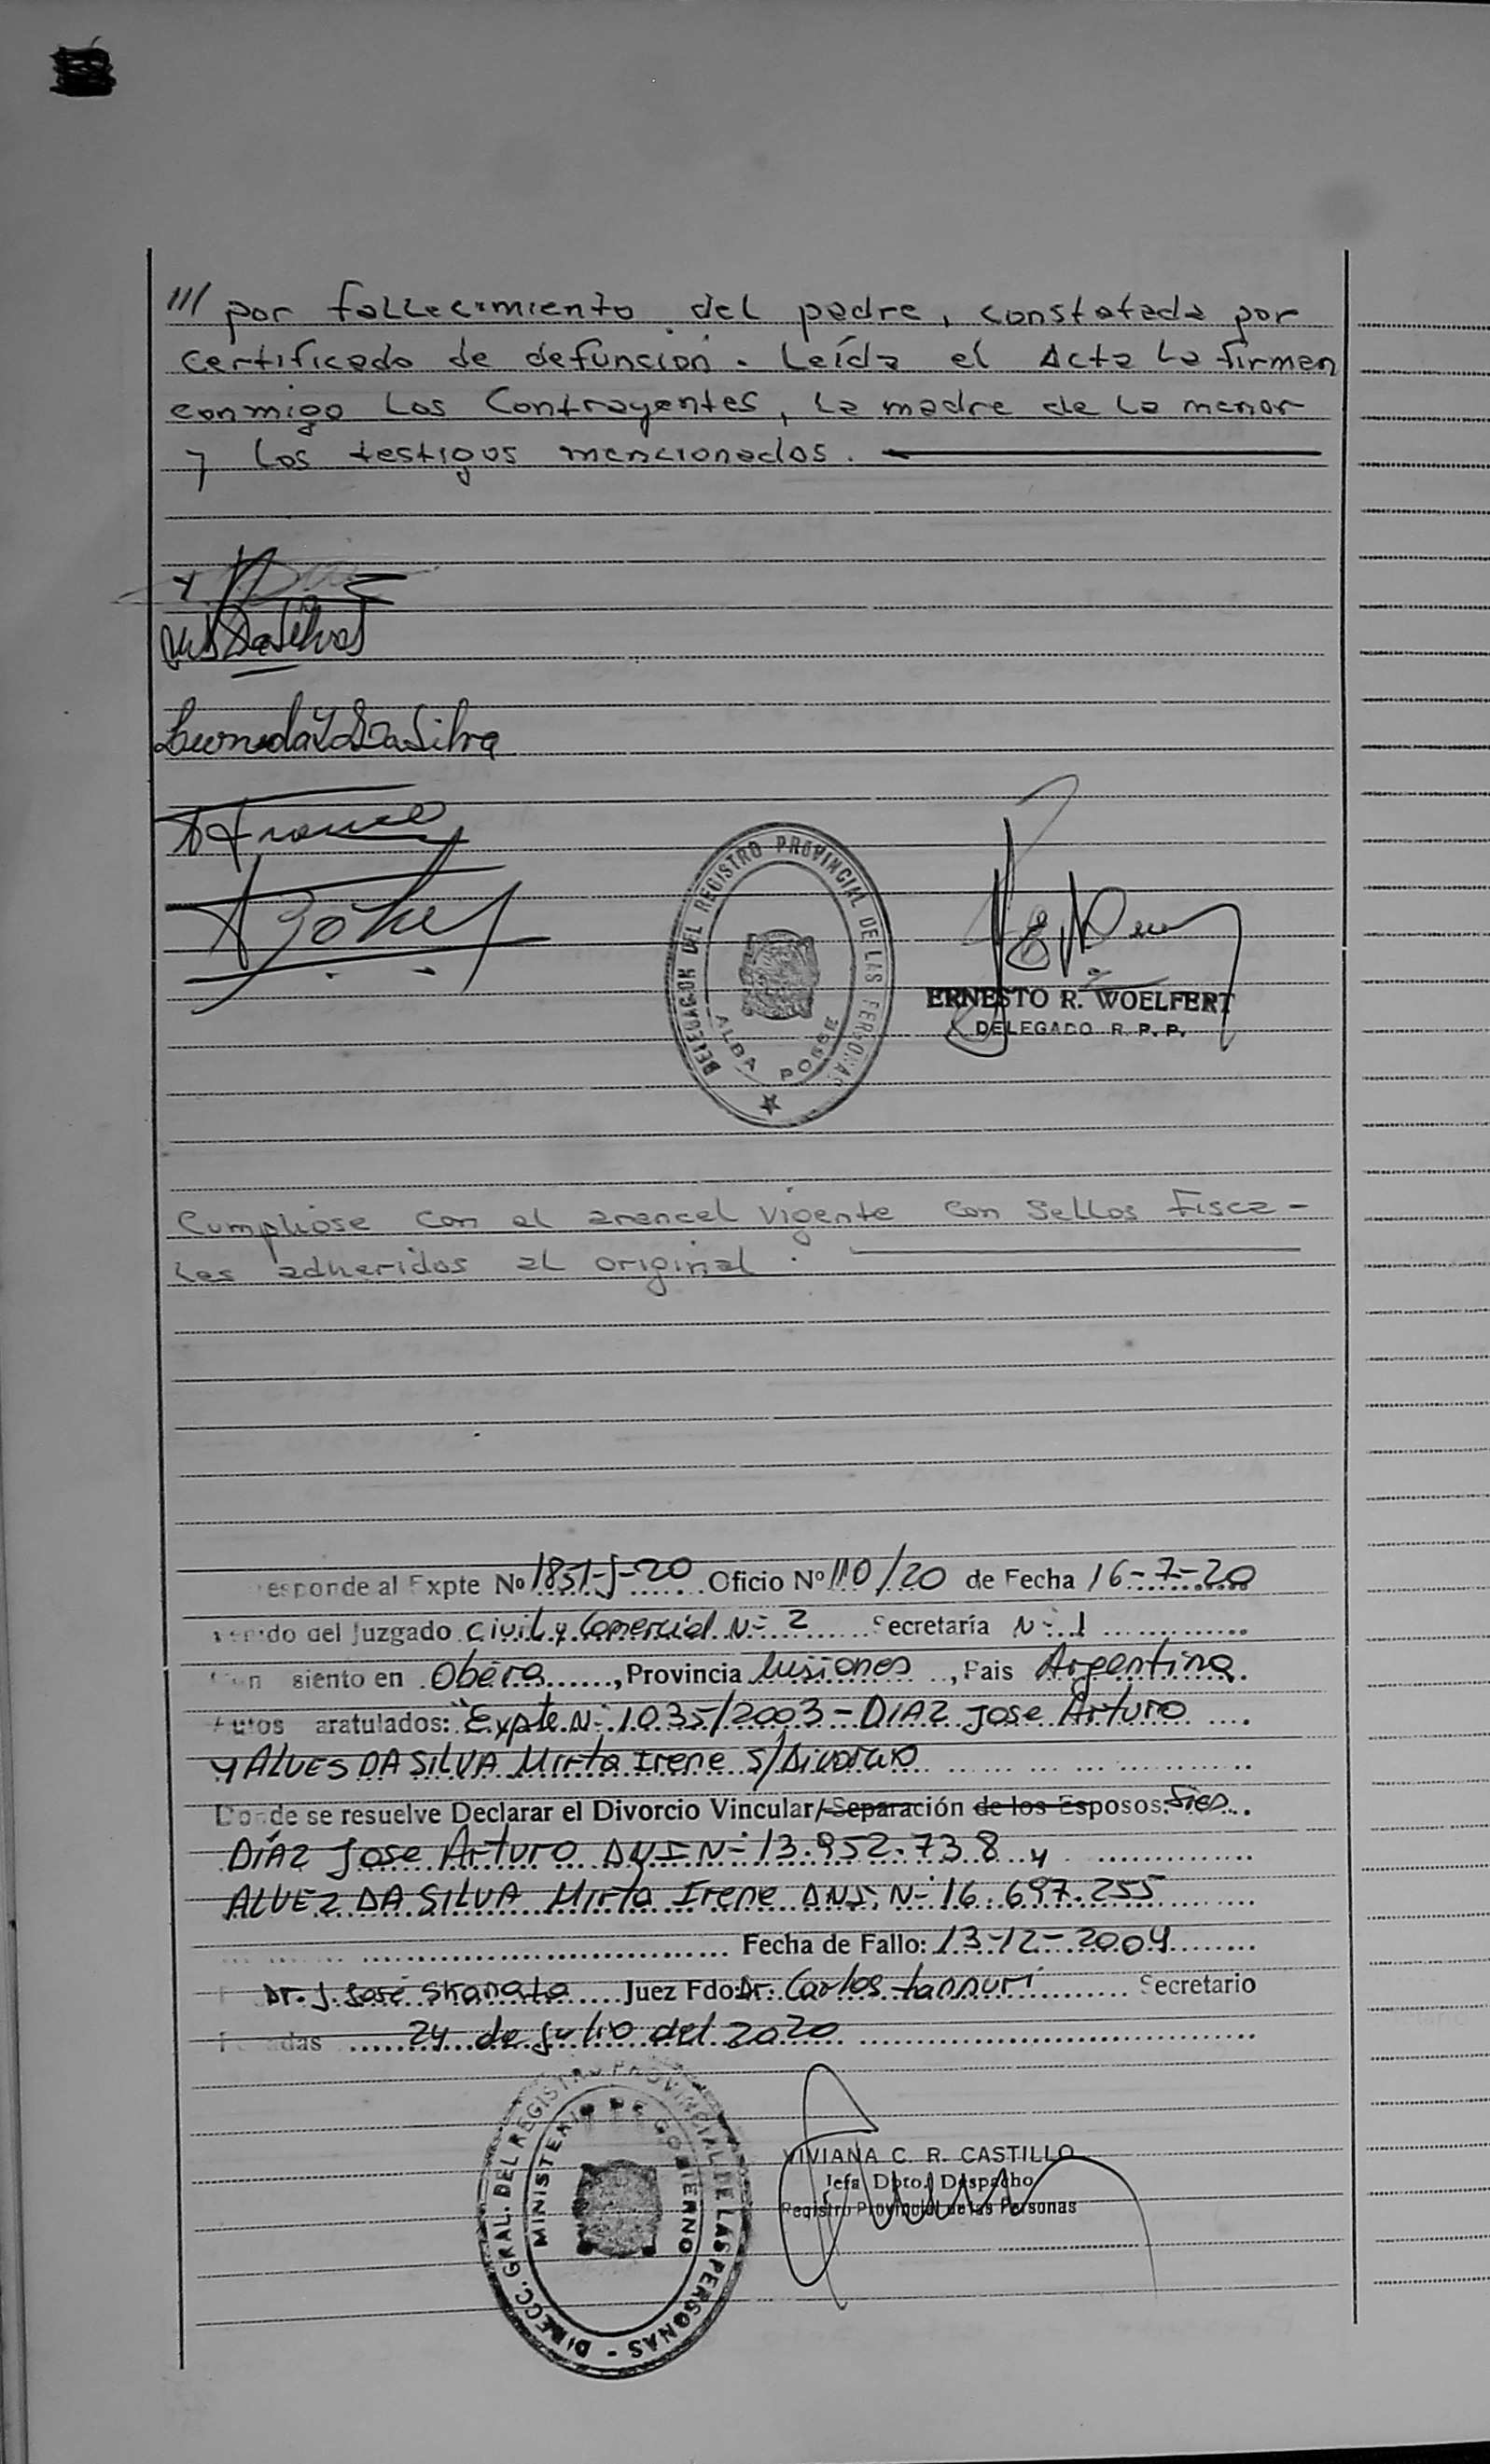 /// por fallecimiento del padre, constatada por
certificado de defuncion. Leída el Acta la firman
conmigo Los Contrayentes, la madre de la menor
y los testigos mencionados.
DaSilva
DaSilva
DELEGACION DEL REGISTRO PROVINCIAL DE LAS PERSONAS
ALBA POSSE
ERNESTO R. WOELFERT
DELEGADO R. P. P.
Cumplióse con el arancel vigente con sellos fisca-
les adheridos al original.
esponde al Expte No 1851-J-20 Oficio Nº 110/20 de Fecha 16-7-20
del Juzgado Civil y Comercial Nº 2 Secretaría Nº 1
siento en Oberá, Provincia Misiones, Pais Argentina.
Autos aratulados: "Expte. Nº 1035/2003 - DIAZ Jose Arturo
y ALVES DA SILVA Mirta Irene S/Divorcio
Donde se resuelve Declarar el Divorcio Vincular/Separación de los Esposos: Sres.
DÍAZ Jose Arturo DNI Nº 13.952.738 y
ALVEZ DA SILVA Mirta Irene DNI. Nº 16.697.255
Fecha de Fallo: 13-12-2004
Dr. J. José Juez Fdo: Dr. Carlos Secretario
adas 24 de julio del 2020
DIRECC. GRAL. DEL REGISTRO PROVINCIAL DE LAS PERSONAS -
MINISTERIO DE GOBIERNO
VIVIANA C. R. CASTILLO
Jefa Dpto. Despacho
Registro Provincial de las Personas